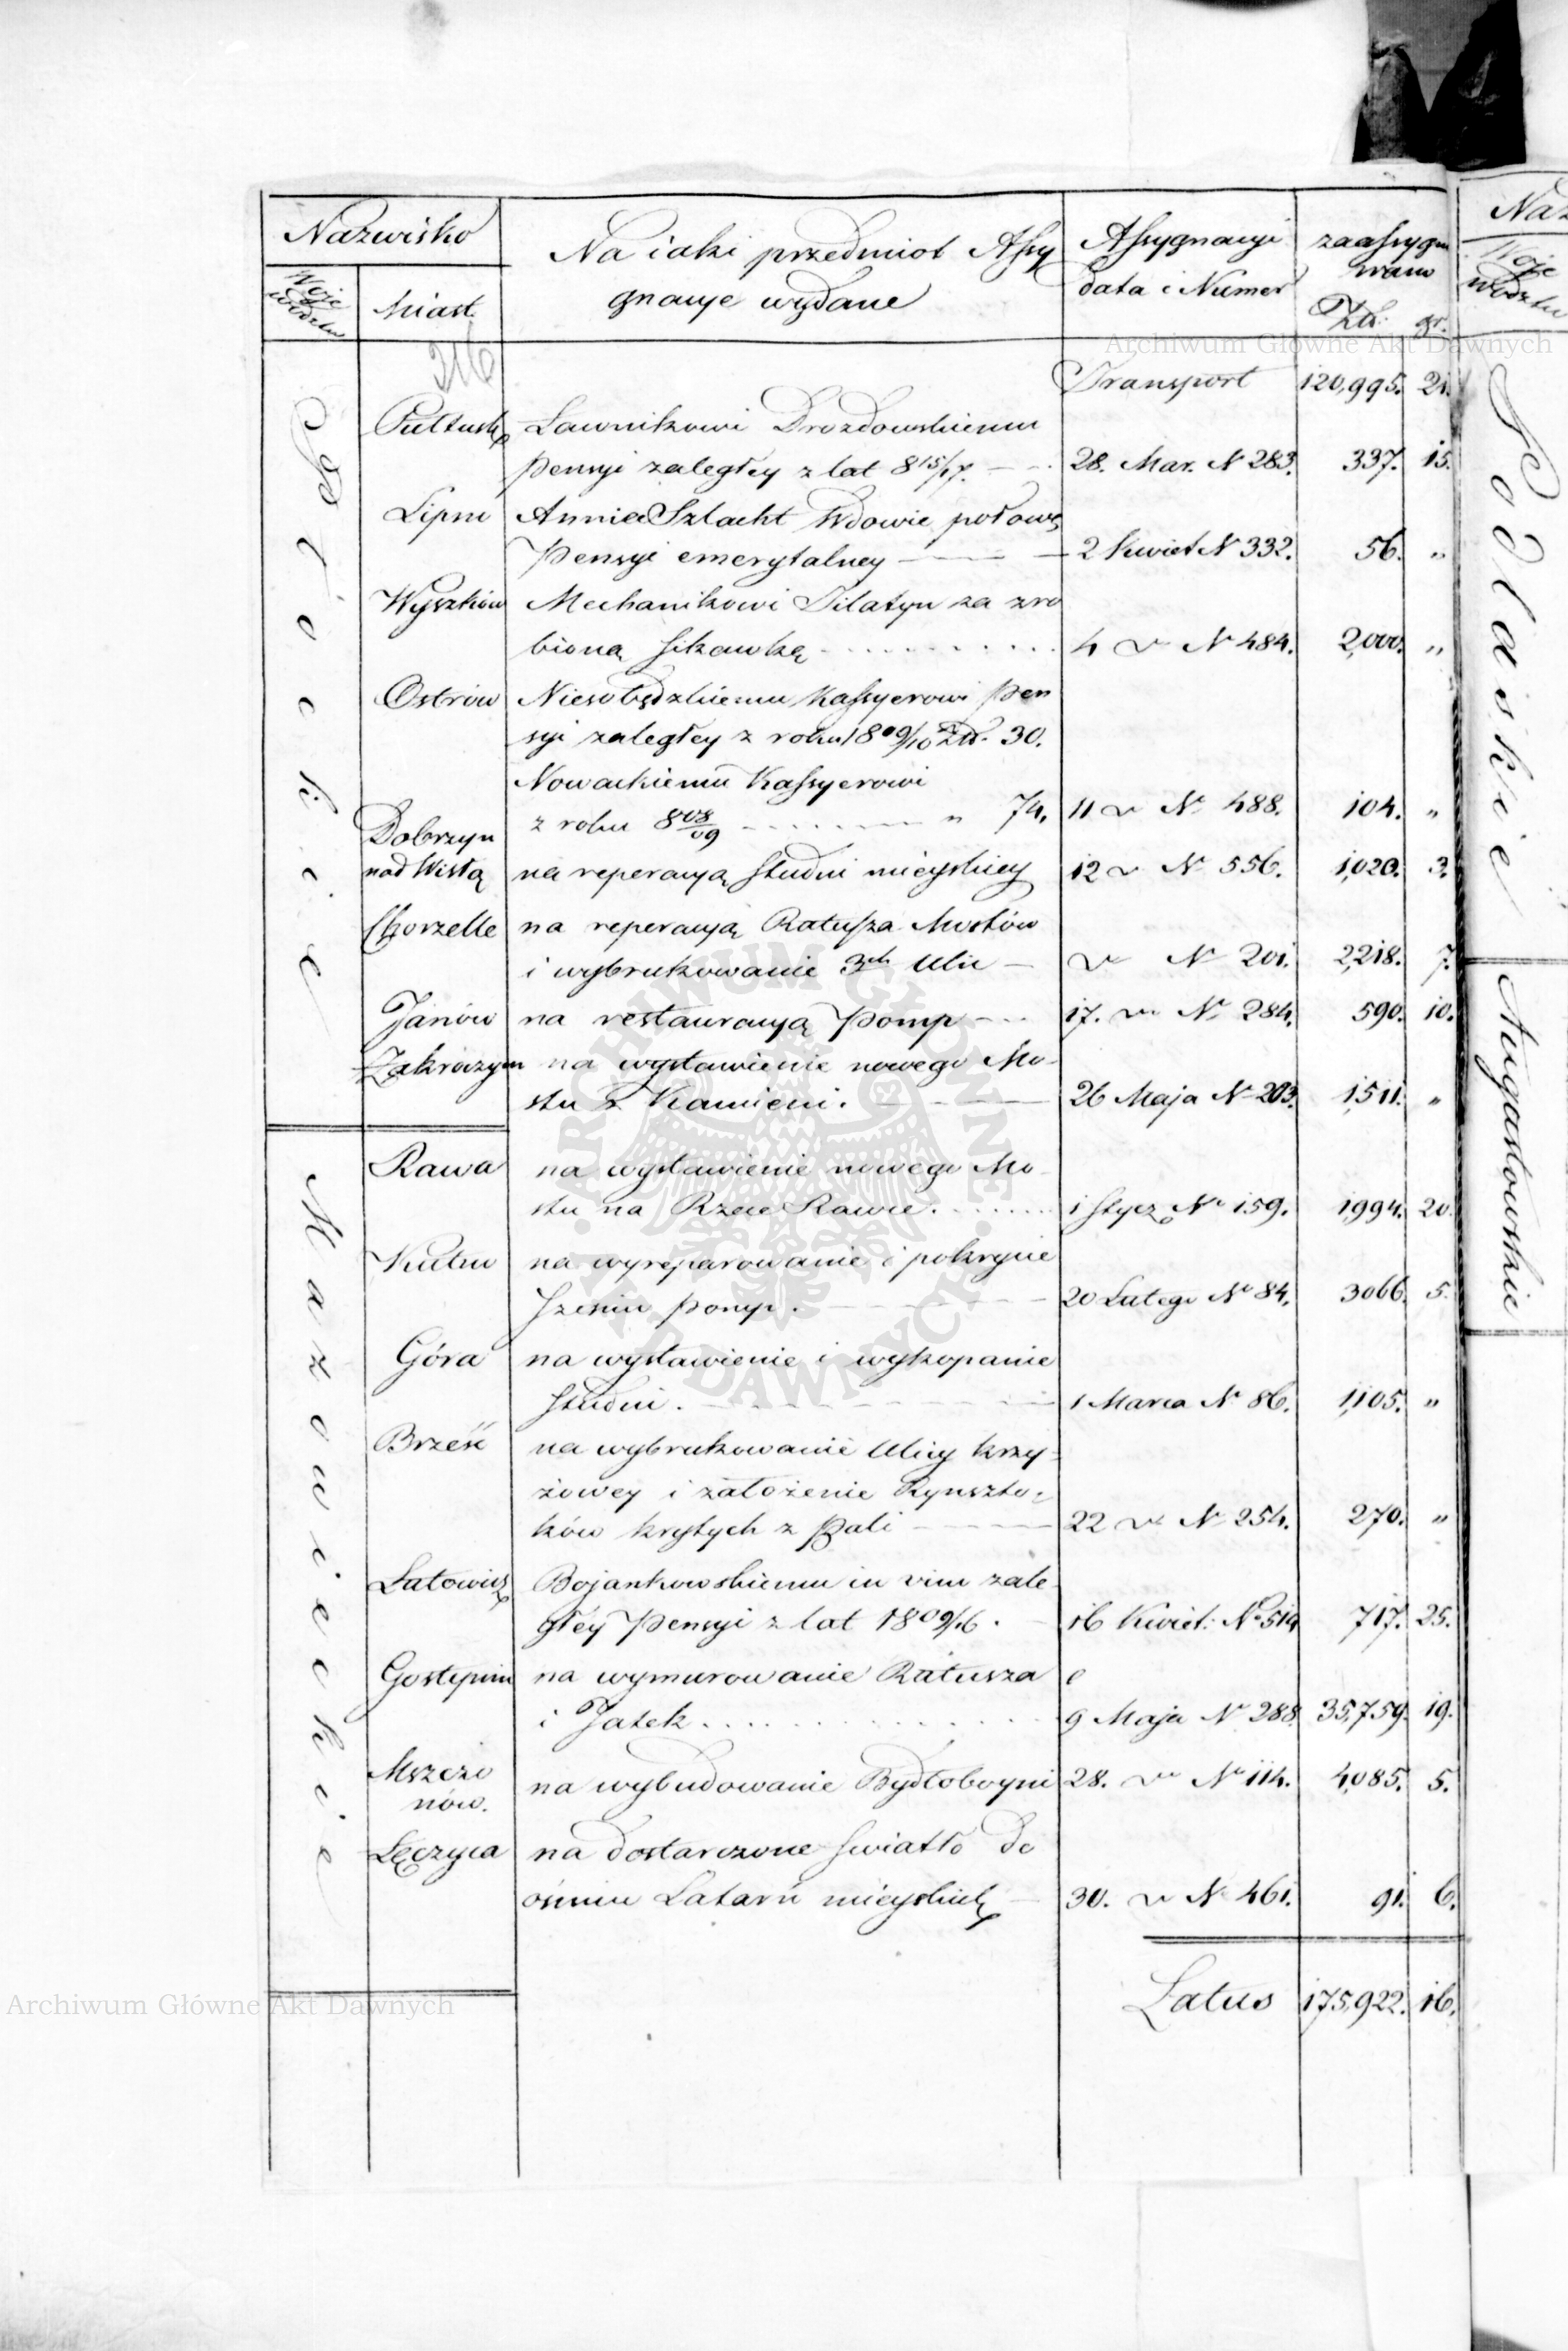 Nazwisko
Na iaki przedmiot Assy
gnacye wydane
Assygnacyi
data i Numer
zaassygno
wano
Woje
wodztw
Miast.
Złt. gr.
216
Płockie
Transport 120,995. 21.
Pułtusk Ławnikowi Drozdowskiemu
Pensyi zaległey z lat 815/17. 28. Mar. N 283. 337. 15.
Lipno Annie Szlacht Wdowie połowę
Pensyi emerytalney 2 Kwiet N 332. 56. "
Wyszków Mechanikowi Pilatyn za zro
bioną sikawkę 4 v N 484. 2,000. "
Ostrów Kassyerowi Pen
syi zaległey z roku 1809/10 Złt. 30.
Nowackiemu Kassyerowi
z roku 808/09 " 74. 11 v N. 488. 104. "
Dobrzyn
nad Wisłą na reperacyą studni mieyskiey 12 v N 556. 1,020. 3.
Chorzelle na reperacyą Ratusza Mostów
i wybrukowanie 3ch Ulic v N 201. 2,218. 7.
Janów na restauracyą Pomp 17. v N. 284. 590. 10.
Zakroczym na wystawienie nowego Mo-
stu z Kamieni. 26 Maja N 203. 1,511. "
Mazowieckie
Rawa na wystawienie nowego Mo-
stu na Rzece Rawie. 1 Stycz. N 159. 1,994. 20.
Kutno na wyreparowanie i pokrycie
sześciu Pomp. 20 Lutego N 84. 3066. 5.
Góra na wystawienie i wykopanie
studni. 1 Marca N. 86. 1,105. "
Brześć na wybrukowanie Ulicy krzy-
żowey i założenie Rynszto-
ków krytych z Pali 22 v N 254. 270. "
Latowicz Bojankowskiemu in vim zale-
głey Pensyi z lat 1809/16. 16 Kwiet: N 514 717. 25.
Gostynin na wymurowanie Ratusza
i Jatek. 9 Maja N 288. 35,759. 19.
Mszczo
nów. na wybudowanie Bydłoboyni 28. v N 114. 4,085. 5.
Łęczyca na dostarczone światło do
ośmiu Latarń mieyskich 30. v N 461. 91. 6.
Latus 175,922. 16.
Naz
Woje
wodztw
Podlaskie
Augustowskie
Archiwum Główne Akt Dawnych
Archiwum Główne Akt Dawnych
ARCHIWUM GŁÓWNE
AKT DAWNYCH